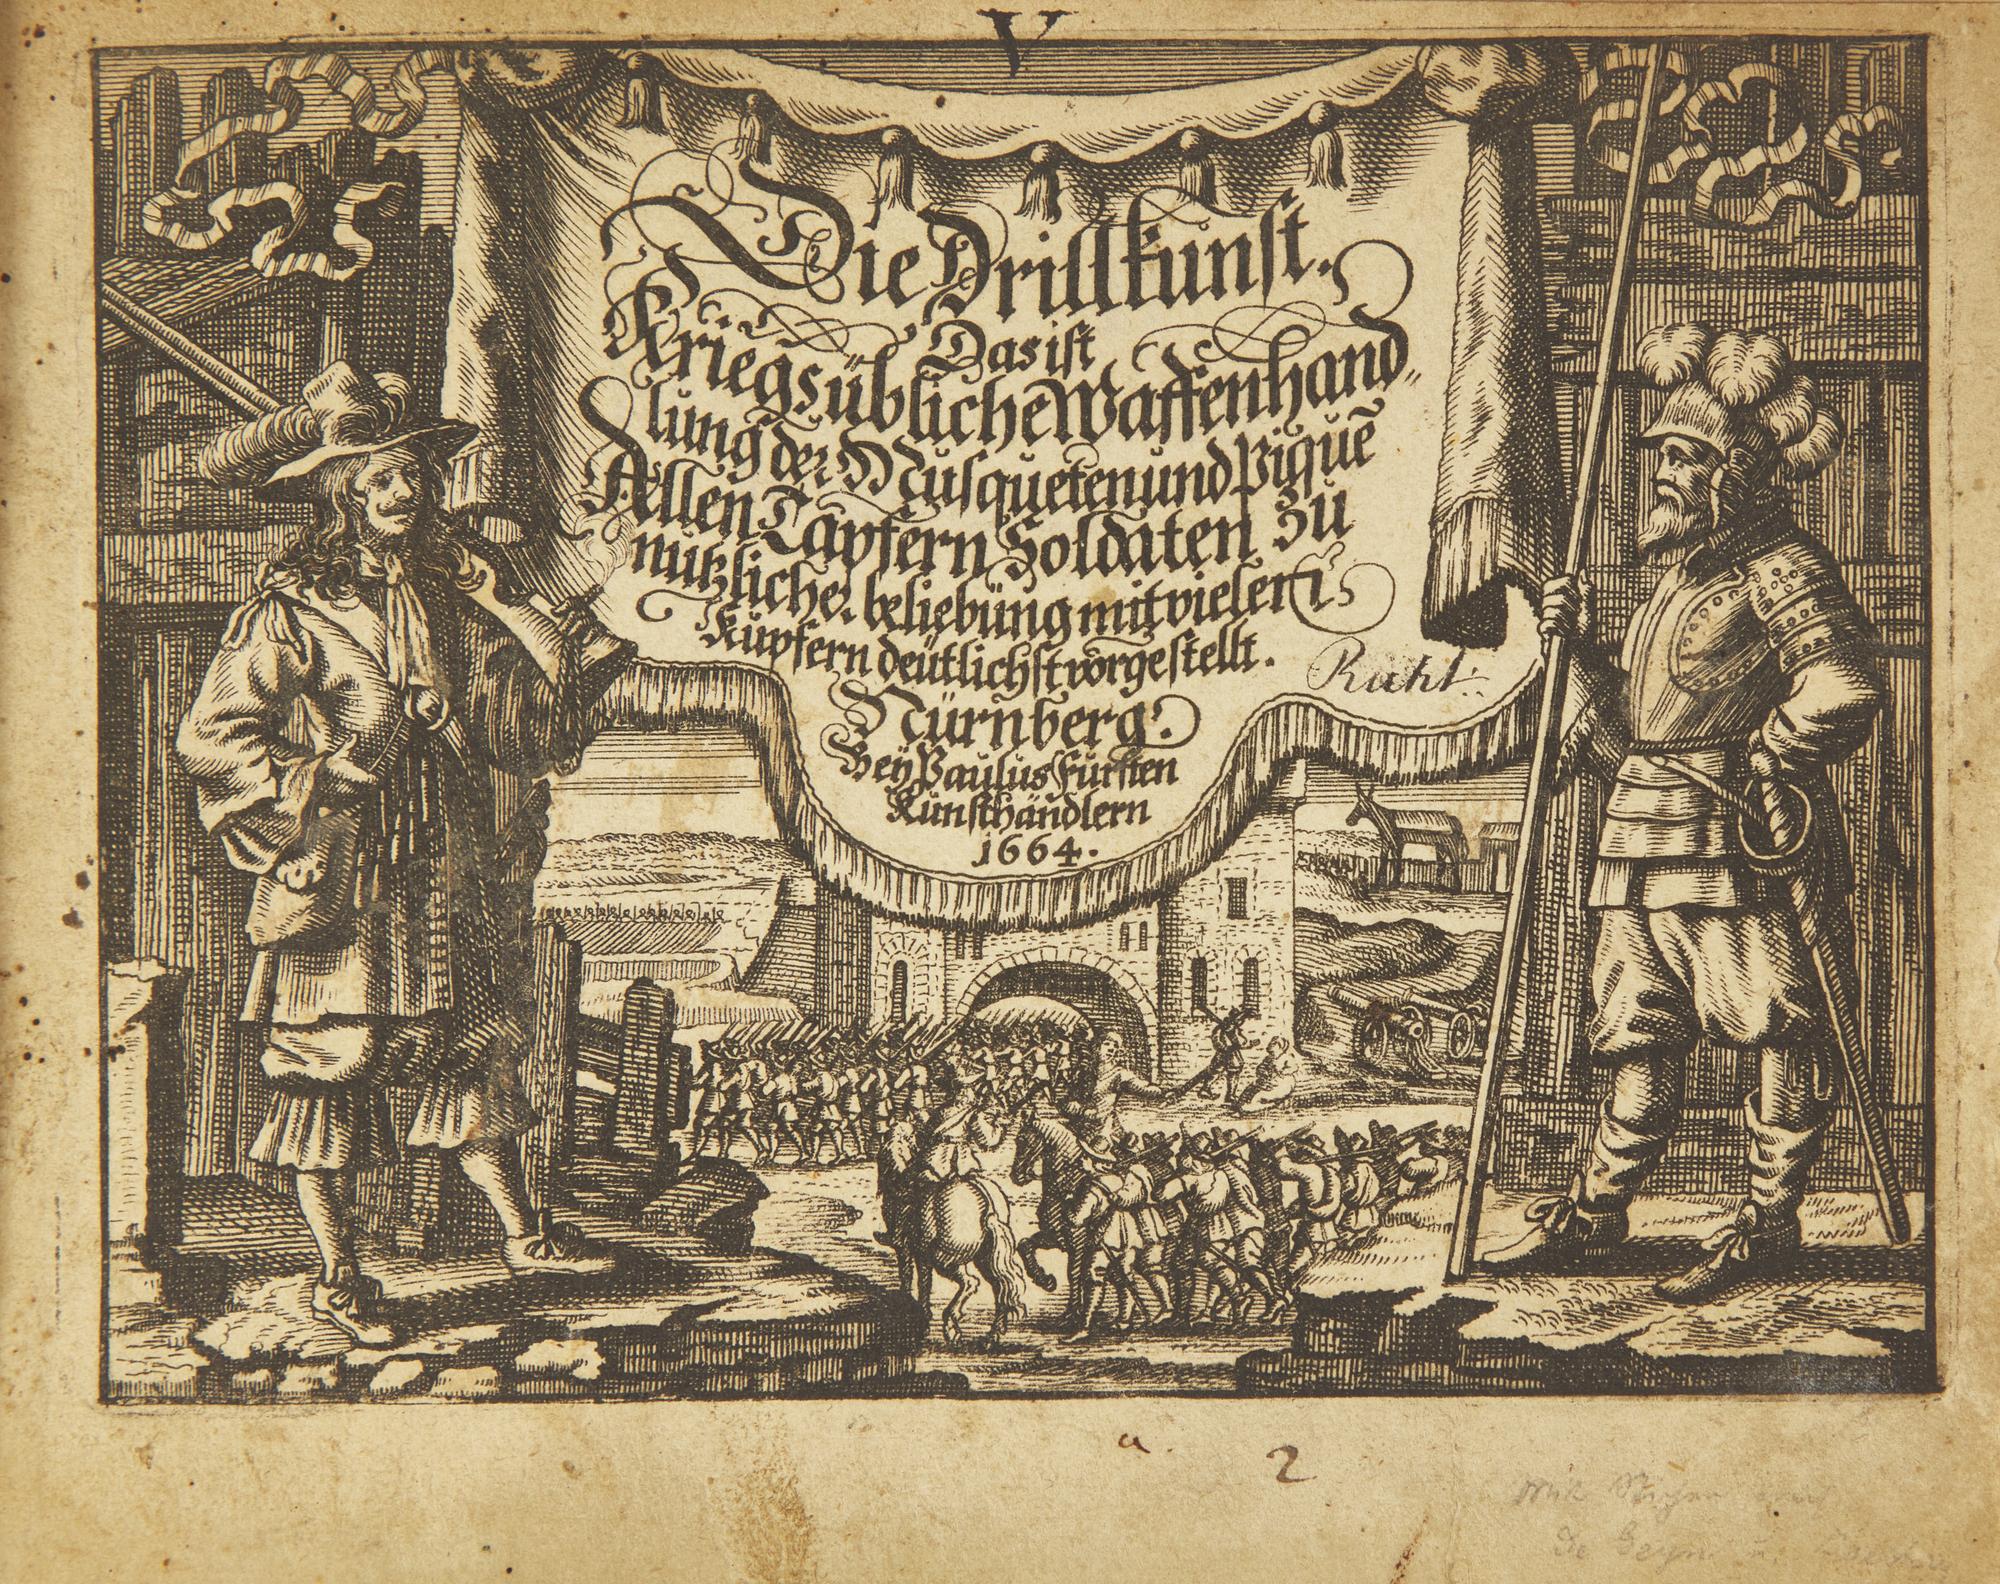 V
Die Drillkunst.
Das ist
Kriegsübliche Waffenhand„
lung der Musqueten und Piquē
Allen Tapfern Soldaten zu
nutzlicher beliebüng mit vielen
Kupfern deütlichst vorgestellt.
Rühl.
Nürnberg.
Bey Paulus Fürsten
Kunsthändlern
1664.
a.
2
Mit Stichen
De Geyn u.